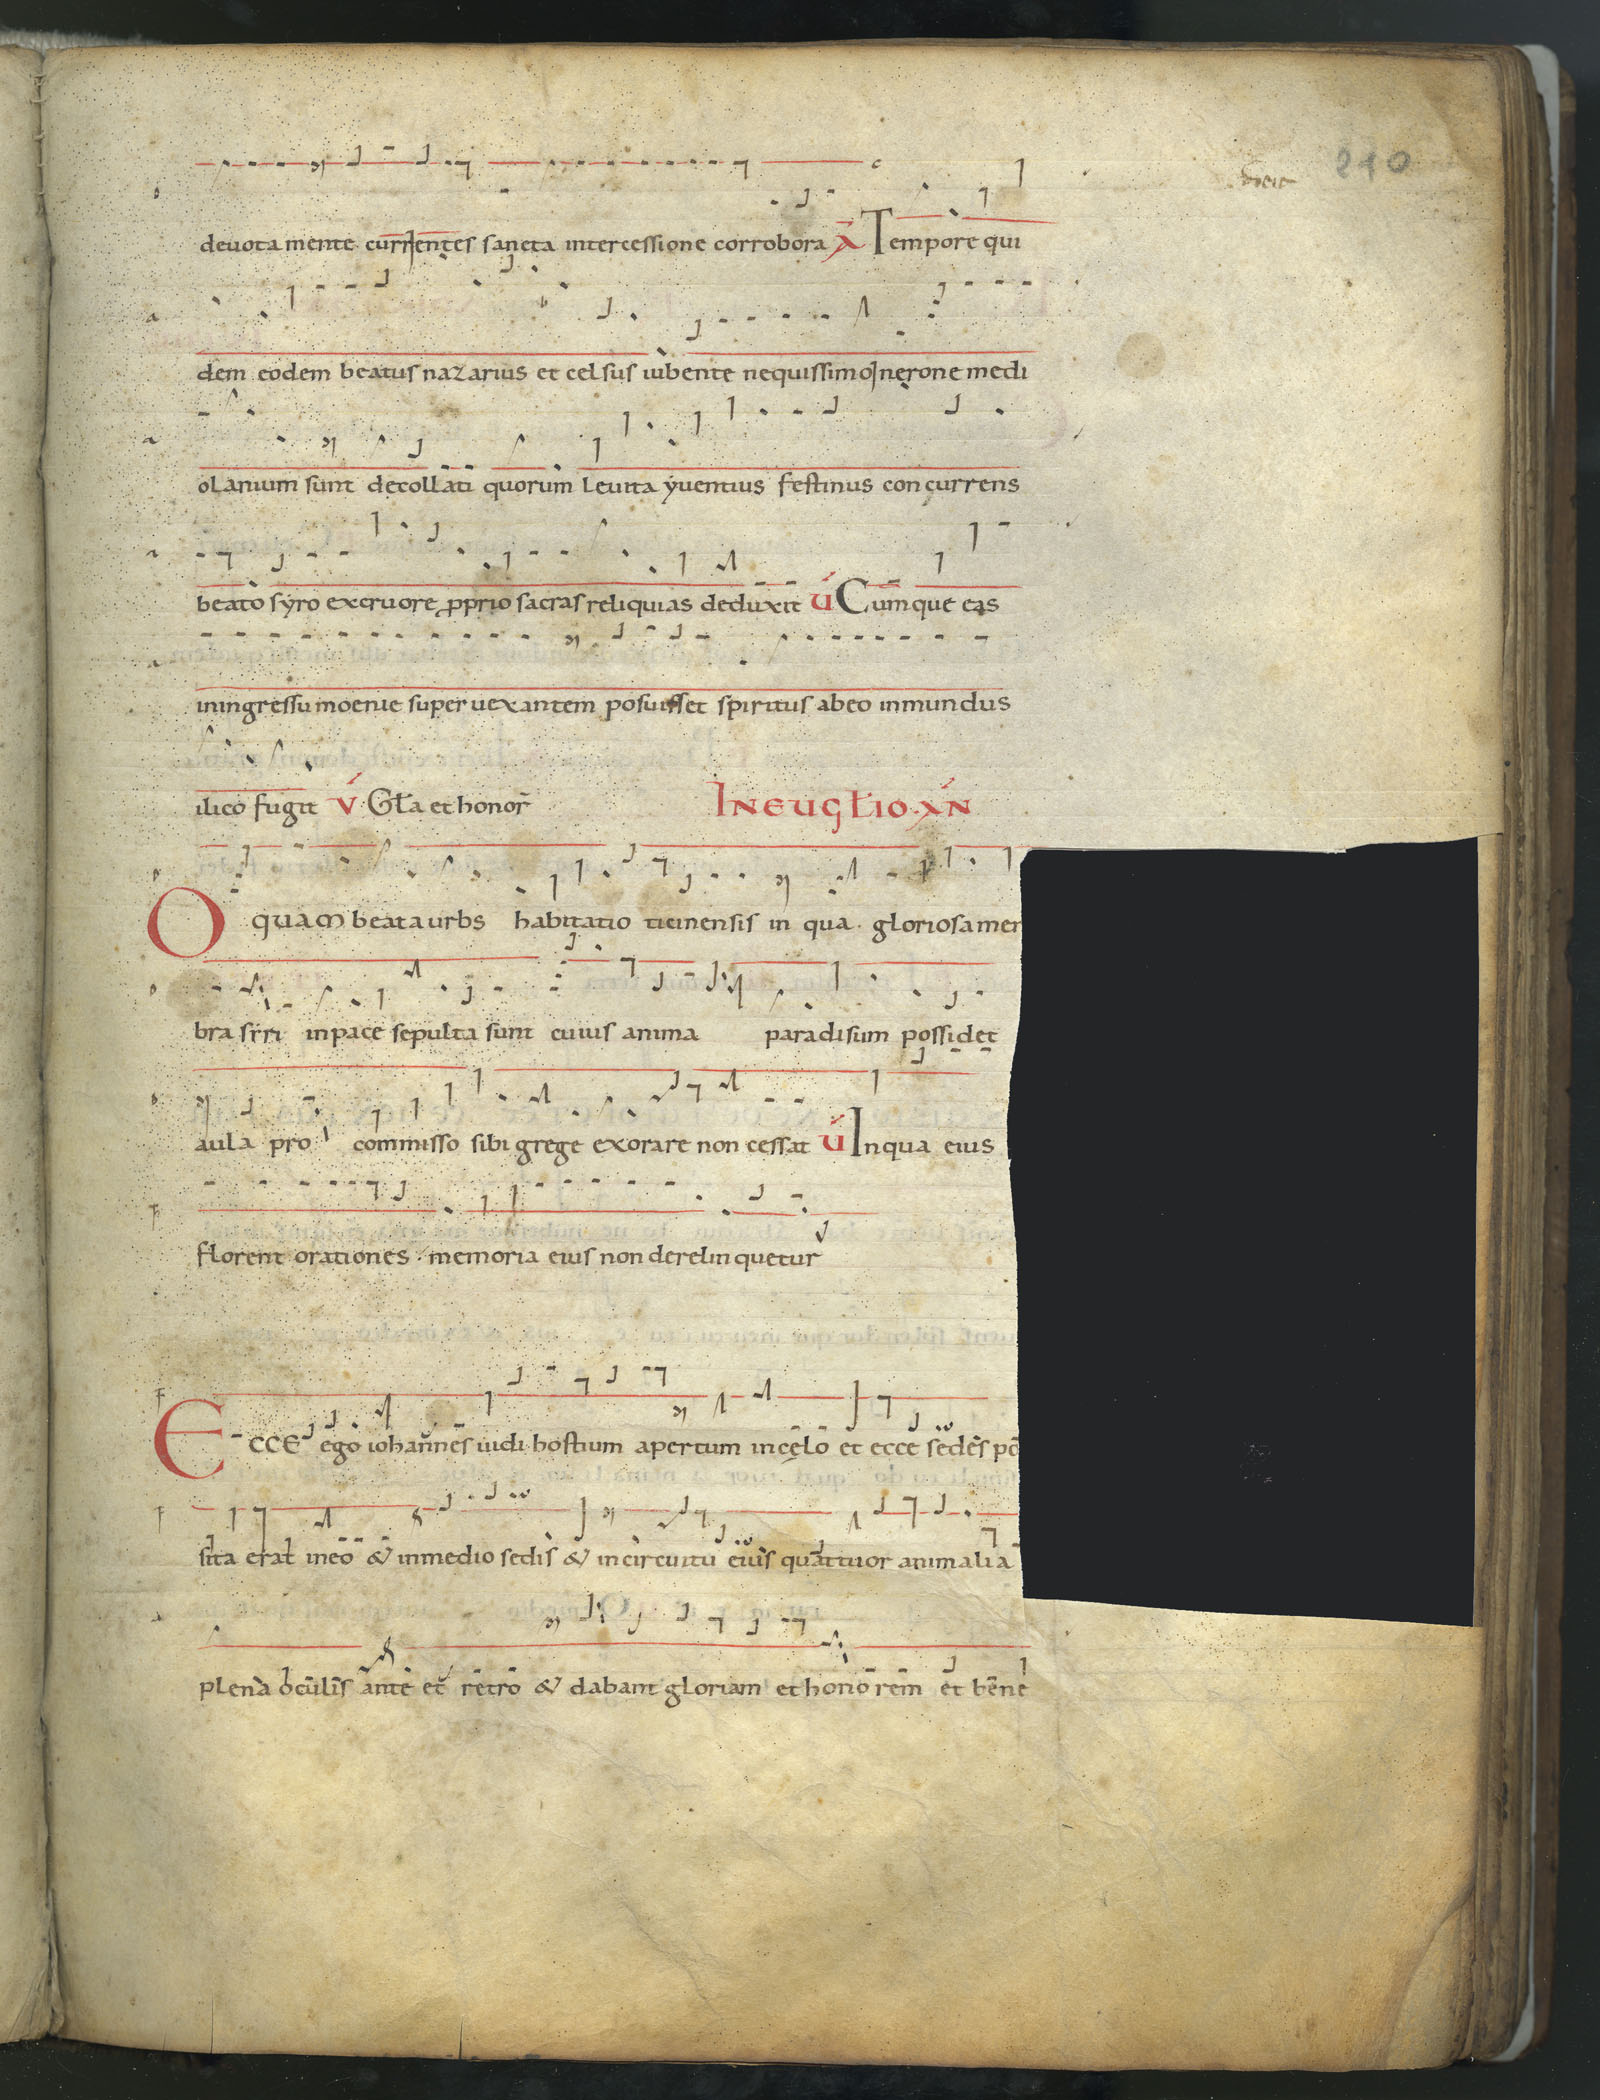 210
deuota mente currentes sancta intercessione corrobora A Tempore qui
dem eodem beatus nazarius et celsus iubente nequissimo nerone medi
olanium sunt decollati quorum leuita yuentius festinus concurrens
beato syro excruore pprio sacras reliquias deduxit V Cumque eas
iningressu moenie super uexantem posuisset spiritus abeo inmundus
ilico fugit V Gła et honor̄ IN EUGŁIO AN
O quam beata urbs habitatio ticinensis in qua gloriosa mem
bra syri inpace sepulta sunt cuius anima paradisum possidet
aula pro commisso sibi grege exorare non cessat V Inqua eius
florent orationes · memoria eius non derelinquetur
Ecce ego iohannes uidi hostium apertum in cęlo et ecce sedes po
sita erat in eo & inmedio sedis & incircuitu eius quattuor animalia
plena oculis ante et retro & dabant gloriam et honorem et bene